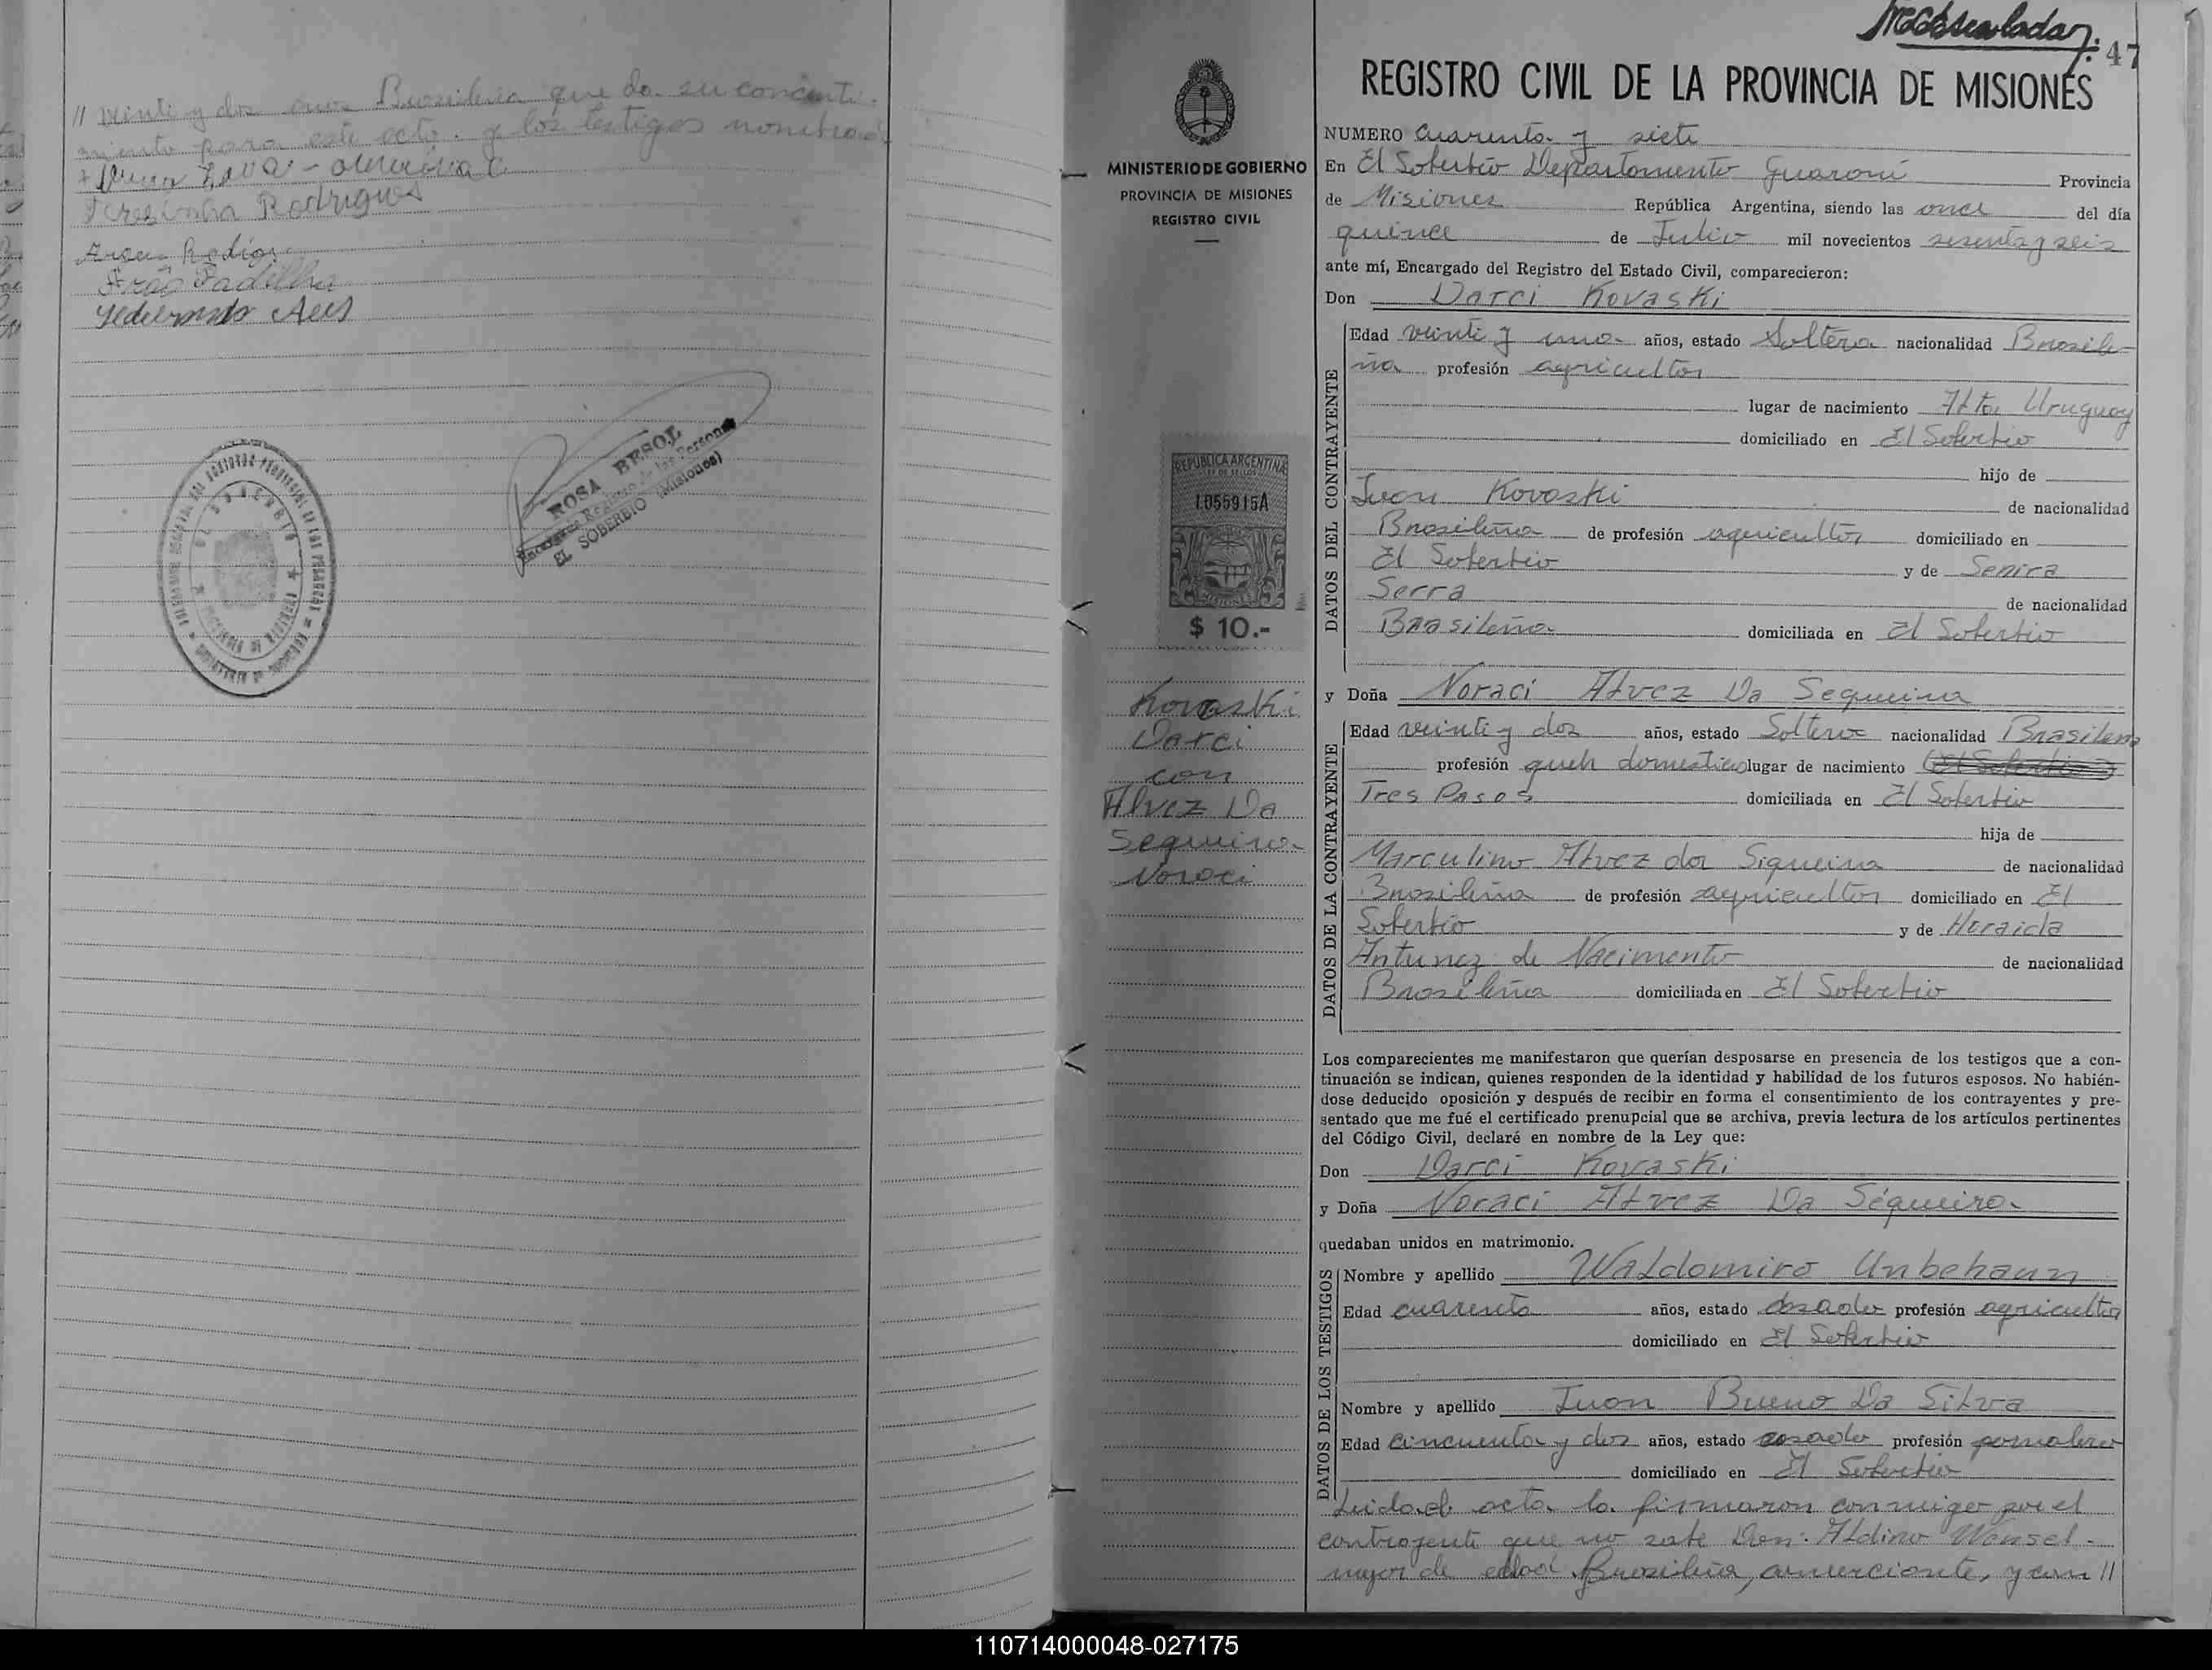 // veinti y dos anos Brasileña que da su consenti-
miento para este acto. y los testigos nombrad
Teresinha Rodrigues
João Padilha
ROSA BESOL
Encargada Registro de las Personas
EL SOBERBIO (Misiones)
EL SOBERBIO
MINISTERIO DE GOBIERNO
PROVINCIA DE MISIONES
REGISTRO CIVIL
REPUBLICA ARGENTINA
LEY DE SELLOS
1.055915A
MISIONES
$ 10.-
Kovaski
Darci
con
Alvez Da
Sequeira
Noraci
47
REGISTRO CIVIL DE LA PROVINCIA DE MISIONES
NUMERO Cuarenta y siete
En El Soberbio Departamento Guaraní Provincia
de Misiones República Argentina, siendo las once del día
quince de Julio mil novecientos sesenta y seis
ante mí, Encargado del Registro del Estado Civil, comparecieron:
Don Darci Kovaski
DATOS DEL CONTRAYENTE
Edad veinti y uno años, estado Soltero nacionalidad Brasile-
ña profesión agricultor
lugar de nacimiento Alto Uruguay
domiciliado en El Soberbio
hijo de
Juan Kovaski de nacionalidad
Brasileña de profesión agricultor domiciliado en
El Soberbio y de Senira
Serra de nacionalidad
Brasileña domiciliada en El Soberbio
y Doña Noraci Alvez Da Sequeira
DATOS DE LA CONTRAYENTE
Edad veinti y dos años, estado Soltera nacionalidad Brasileña
profesión queh domesticos lugar de nacimiento (El Soberbio)
Tres Pasos domiciliada en El Soberbio
hija de
Marculino Alvez da Siqueira de nacionalidad
Brasileña de profesión agricultor domiciliado en El
Soberbio y de Horaida
Antunez de Nacimento de nacionalidad
Brasileña domiciliada en El Soberbio
Los comparecientes me manifestaron que querían desposarse en presencia de los testigos que a con-
tinuación se indican, quienes responden de la identidad y habilidad de los futuros esposos. No habién-
dose deducido oposición y después de recibir en forma el consentimiento de los contrayentes y pre-
sentado que me fué el certificado prenupcial que se archiva, previa lectura de los artículos pertinentes
del Código Civil, declaré en nombre de la Ley que:
Don Darci Kovaski
y Doña Noraci Alvez Da Séqueira
quedaban unidos en matrimonio.
DATOS DE LOS TESTIGOS
Nombre y apellido Waldomiro Unbehaun
Edad cuarenta años, estado casado profesión agricultor
domiciliado en El Soberbio
Nombre y apellido Juan Bueno Da Silva
Edad cincuenta y dos años, estado casado profesión
domiciliado en El Soberbio
Leida el acta la firmaron conmigo por el
contrayente que no sabe Don: Aldino Wensel-
mayor de edad Brasileña, comerciante, y con //
110714000048-027175